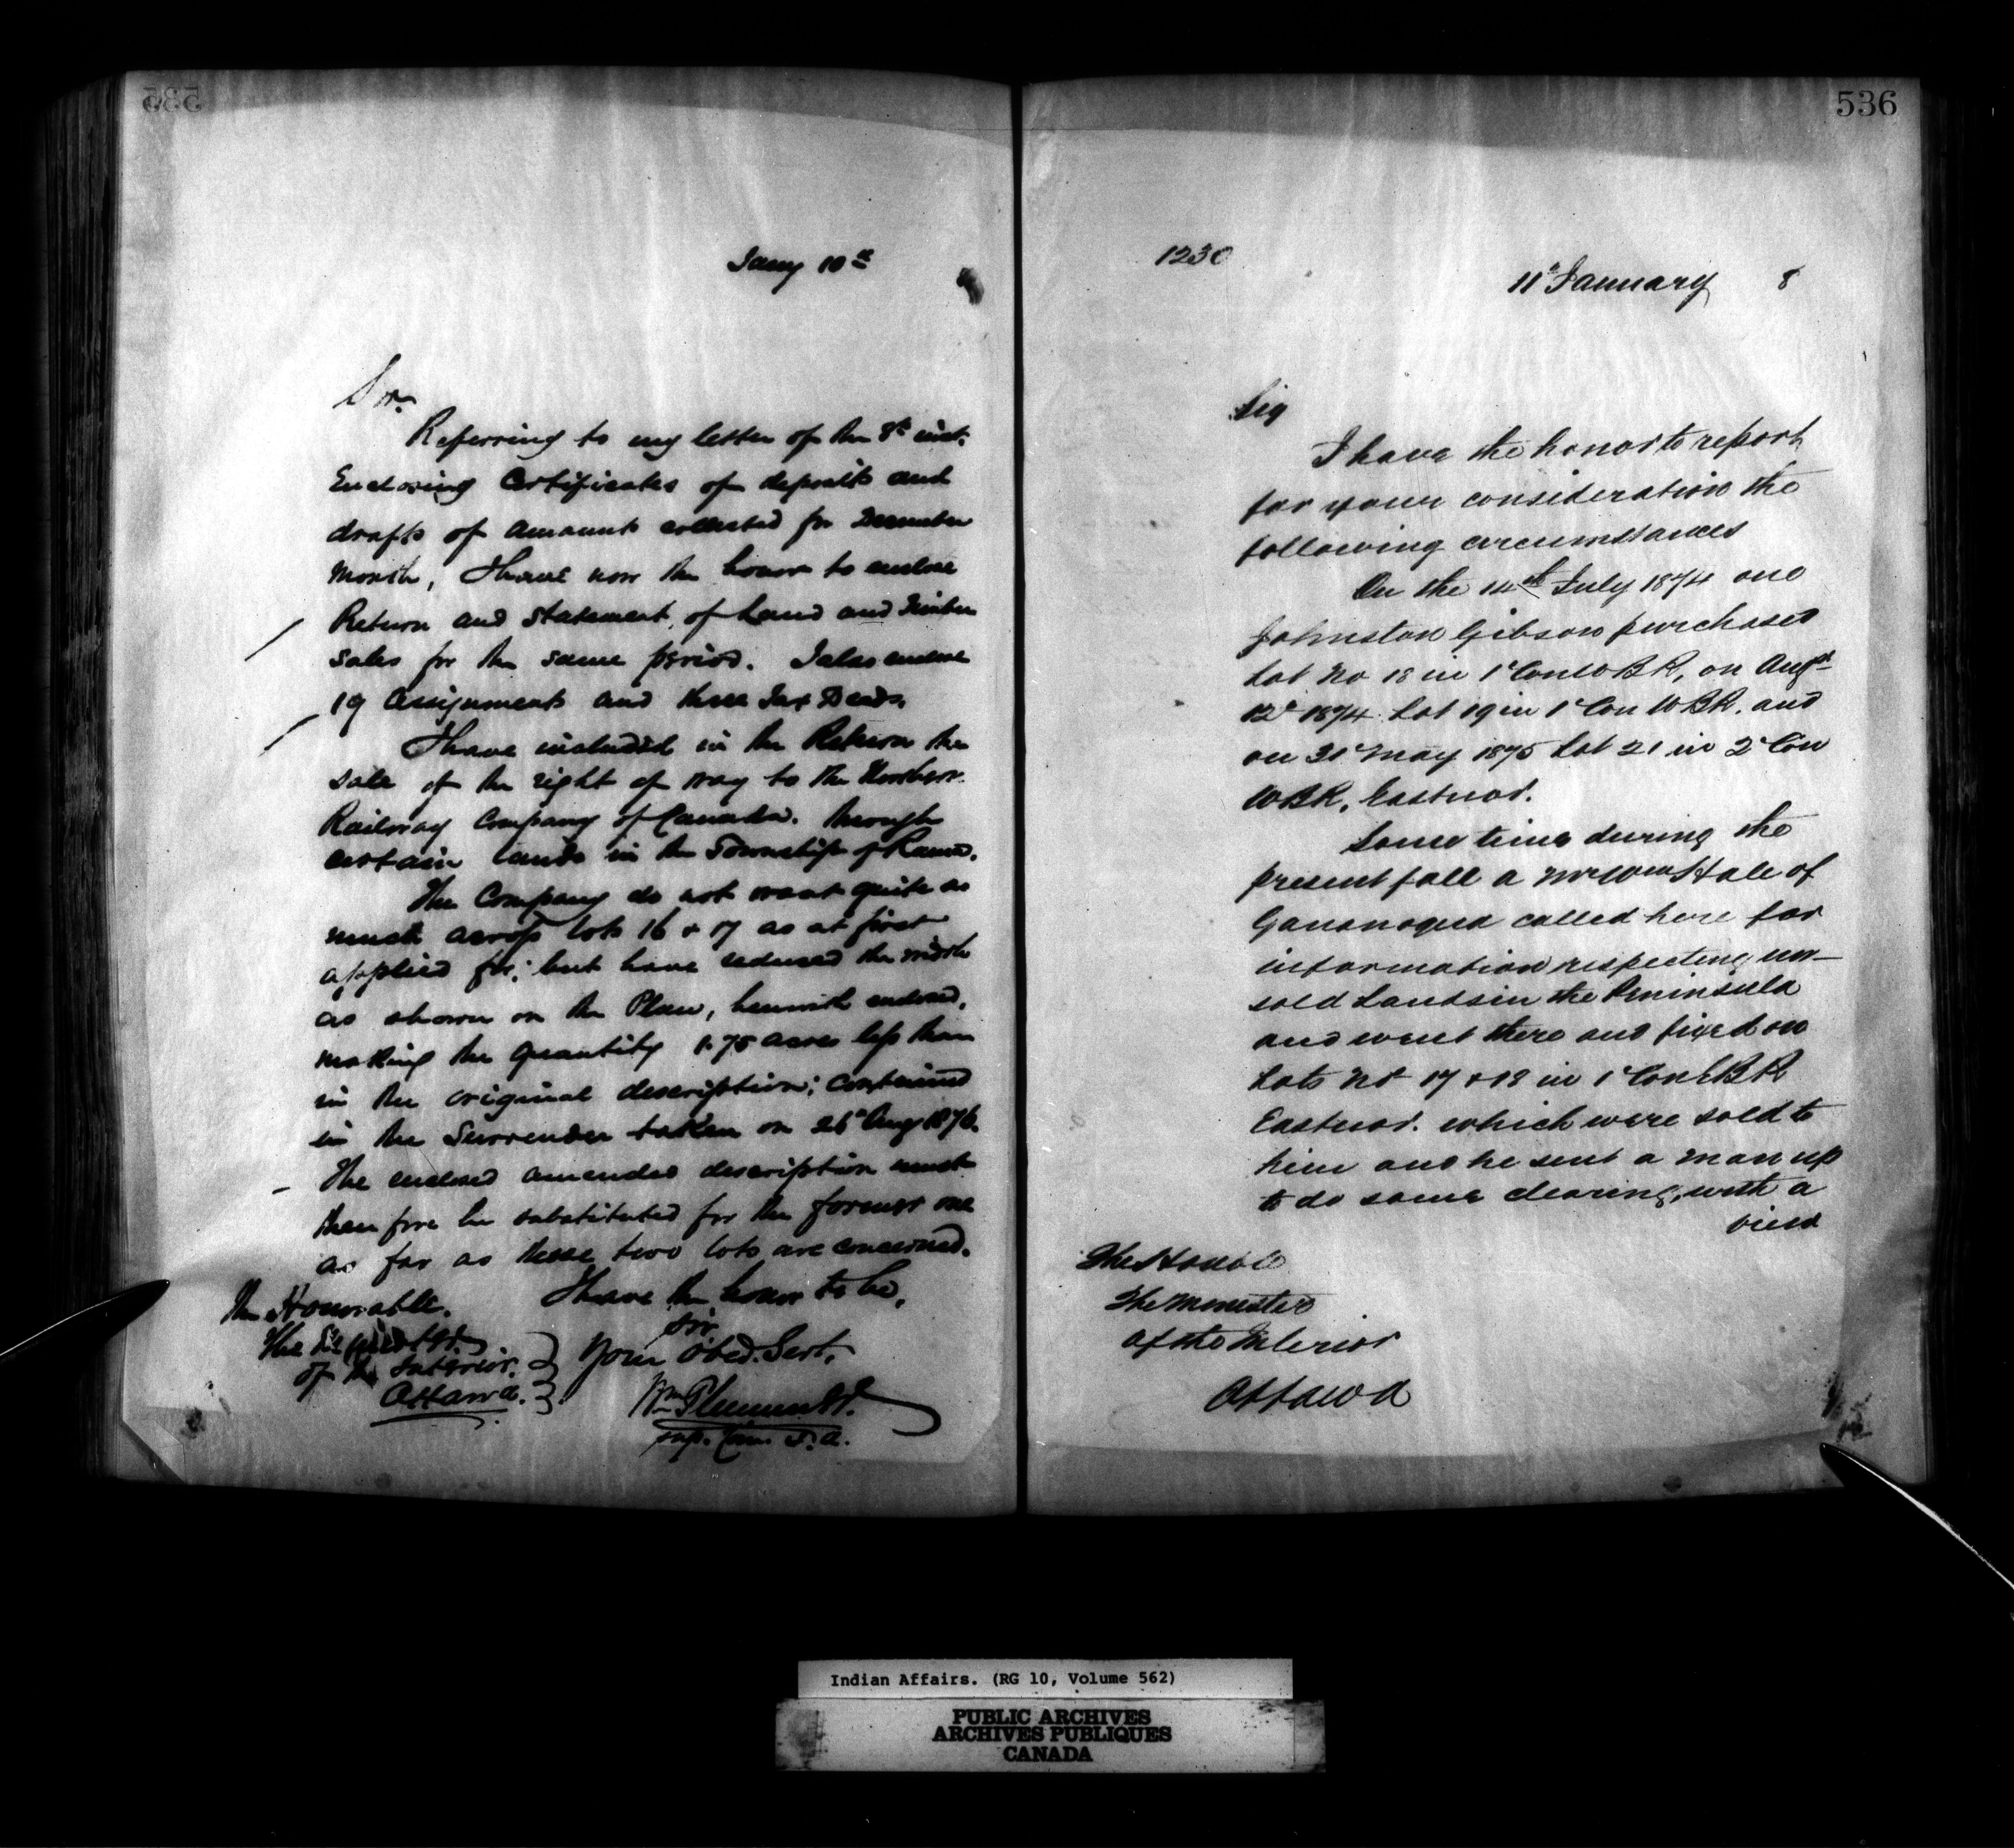 535
Jany 10th
Sir
Referring to my letter of the 8th inst.
Enclosing Certificates of deposits and
drafts of amounts collected for December
Month, I have now the honor to enclose
Return and Statement of Land and Timber
sales for the same period. I also enclose
19 Assignments and three Tax Deeds.
I have included in the Return the
sale of the right of way to the Northern
Railway Company of Canada. through
certain lands in the Township of Rama.
The Company do not want quite as
much across lots 16 & 17 as at first
applied for; but have reduced the width
as shown on the Plan, herewith enclosed,
making the quantity 1.75 acres less than
in the original description; contained
in the Surrender taken on 26th Aug 1876.
The enclosed amended description must
therefore be substituted for the former one
as far as these two lots are concerned.
I have the honor to be,
Sir
Your Obed. Servt,
Wm Plummer
Sup. Com. I. A.
The Honorable.
The
of the Interior.
Ottawa.
536
1230
11th January 8
Sir
I have the honor to report
for your consideration the
following circumstances
On the 14th July 1874 one
Johnston Gibson purchased
Lot No 18 in 1 Con W B R, on Augst
12th 1874 Lot 19 in 1 Con W B R. and
on 31 May 1875 Lot 21 in 2 Con
W B R, Eastnor.
Some time during the
present fall a Mr Wm Hale of
Gananoqua called here for
information respecting un-
sold Lands in the Peninsula
and went there and fixed on
Lots No 17 & 18 in 1 Con E B R
Eastnor. which were sold to
him and he sent a man up
to do some clearing, with a
view
The Honble
The Minister
of the Interior
Ottawa
Indian Affairs. (RG 10, Volume 562)
PUBLIC ARCHIVES
ARCHIVES PUBLIQUES
CANADA